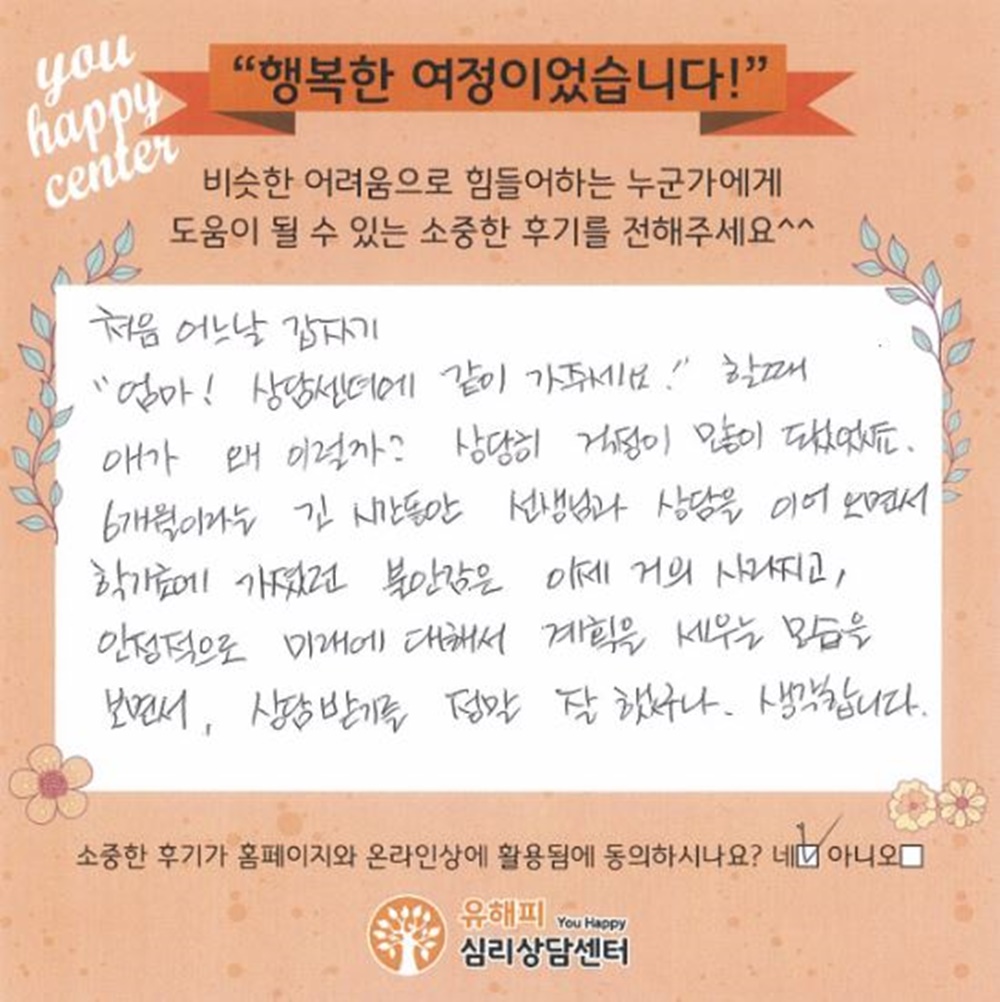 you
happy
center
“행복한 여정이었습니다!”
비슷한 어려움으로 힘들어하는 누군가에게
도움이 될 수 있는 소중한 후기를 전해주세요^^
처음 어느날 갑자기
"엄마! 상담센터에 같이 가주세요!" 할때
애가 왜 이럴까? 상당히 걱정이 많이 되었었죠.
6개월이라는 긴 시간동안 선생님과 상담을 이어 오면서
학기초에 가졌던 불안감은 이제 거의 사라지고,
안정적으로 미래에 대해서 계획을 세우는 모습을
보면서, 상담받기를 정말 잘 했구나. 생각합니다.
소중한 후기가 홈페이지와 온라인상에 활용됨에 동의하시나요? 네☑ 아니오☐
유해피 You Happy
심리상담센터